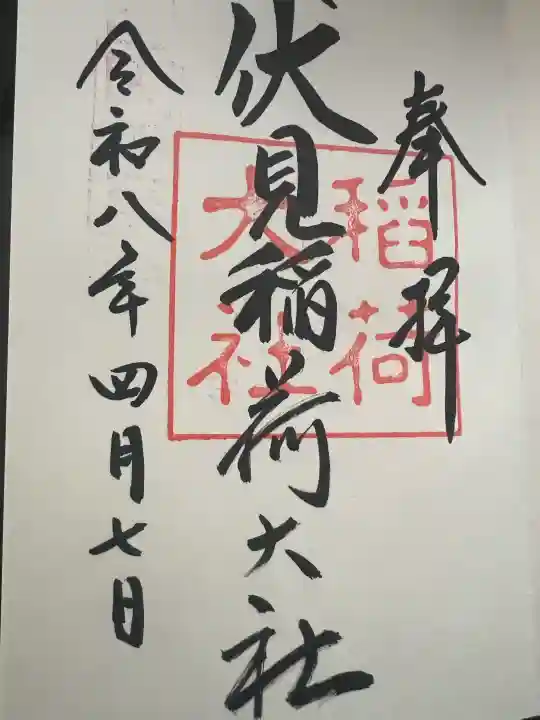 奉拝
伏見稲荷大社
稲荷
大社
令和八年四月七日